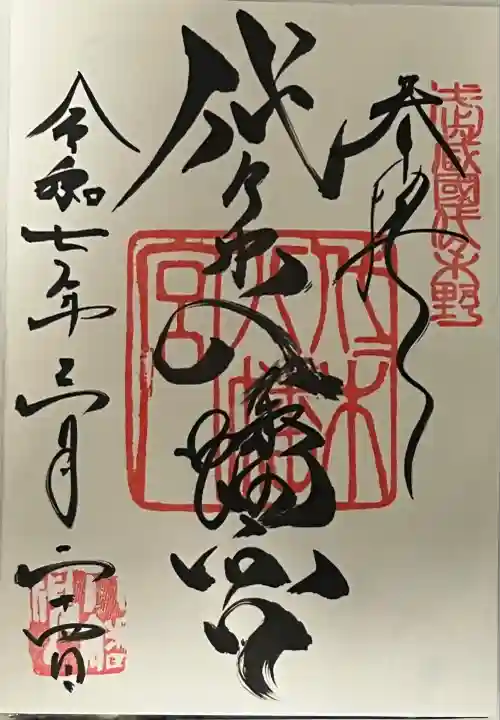 武蔵國代々木野
奉拝
代々木八幡宮
代々木八幡宮
令和七年三月二十四日